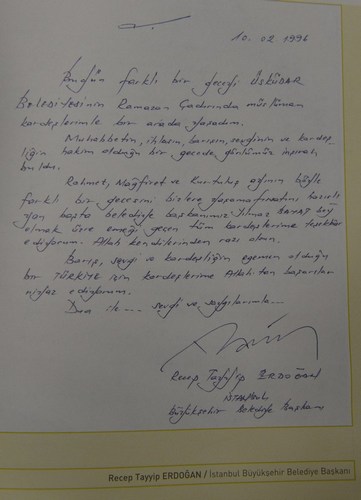 10.02.1996
Bugün farklı bir geceyi ÜSKÜDAR
Belediyesinin Ramazan Çadırında müslüman
kardeşlerimle bir arada yaşadım.
Muhabbetin, ihlasın, barışın, sevginin ve kardeş-
liğin hakim olduğu bir gecede, gönlümüz inşirah
buldu.
Rahmet, Mağfiret ve Kurtuluş ayının böyle
farklı bir gecesini bizlere yaşama fırsatını hazırlı
yan başta belediye başkanımız Yılmaz BAYAT bey
olmak üzre emeği geçen tüm kardeşlerime teşekkür
ediyorum. Allah kendilerinden razı olsun.
Barış, sevgi ve kardeşliğin egemen olduğu
bir TÜRKİYE için kardeşlerime Allah'tan başarılar
niyaz ediyorum.
Dua ile... sevgi ve saygılarımla...
Recep Tayyip ERDOĞAN
İSTANBUL
Büyükşehir Belediye Başkanı
Recep Tayyip ERDOĞAN / İstanbul Büyükşehir Belediye Başkanı